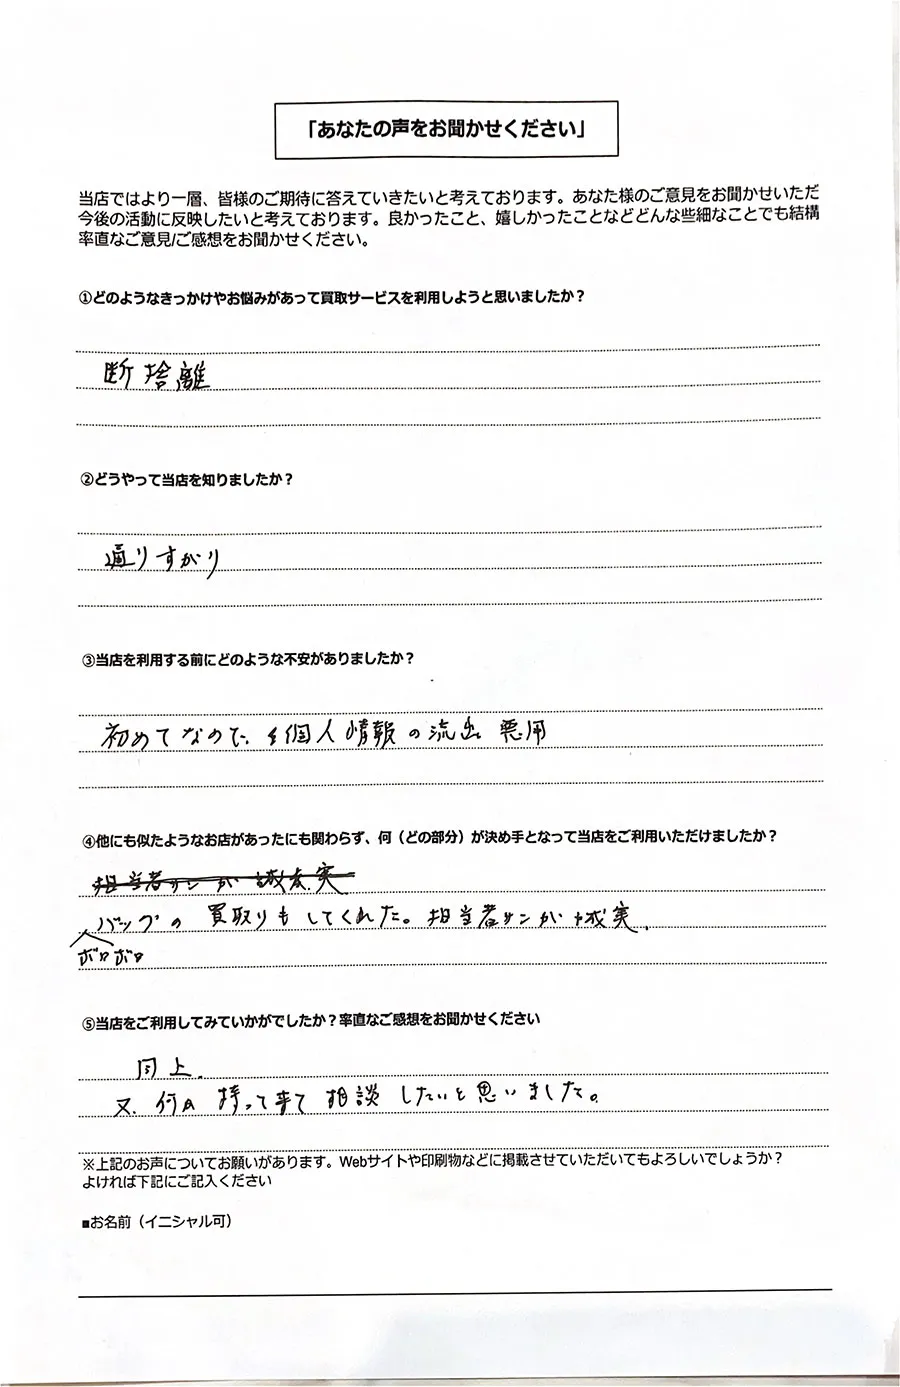 「あなたの声をお聞かせください」
当店ではより一層、皆様のご期待に答えていきたいと考えております。あなた様のご意見をお聞かせいただ
今後の活動に反映したいと考えております。良かったこと、嬉しかったことなどどんな些細なことでも結構
率直なご意見/ご感想をお聞かせください。
①どのようなきっかけやお悩みがあって買取サービスを利用しようと思いましたか？
断捨離
②どうやって当店を知りましたか？
通りすがり
③当店を利用する前にどのような不安がありましたか？
初めてなので、個人情報の流出 悪用
④他にも似たようなお店があったにも関わらず、何（どの部分）が決め手となって当店をご利用いただけましたか？
担当者サンが誠実
バッグの買取りもしてくれた。担当者サンが誠実.
ボロボロ
⑤当店をご利用してみていかがでしたか？率直なご感想をお聞かせください
同上.
又、何か持って来て相談したいと思いました。
※上記のお声についてお願いがあります。Webサイトや印刷物などに掲載させていただいてもよろしいでしょうか？
よければ下記にご記入ください
■お名前（イニシャル可）